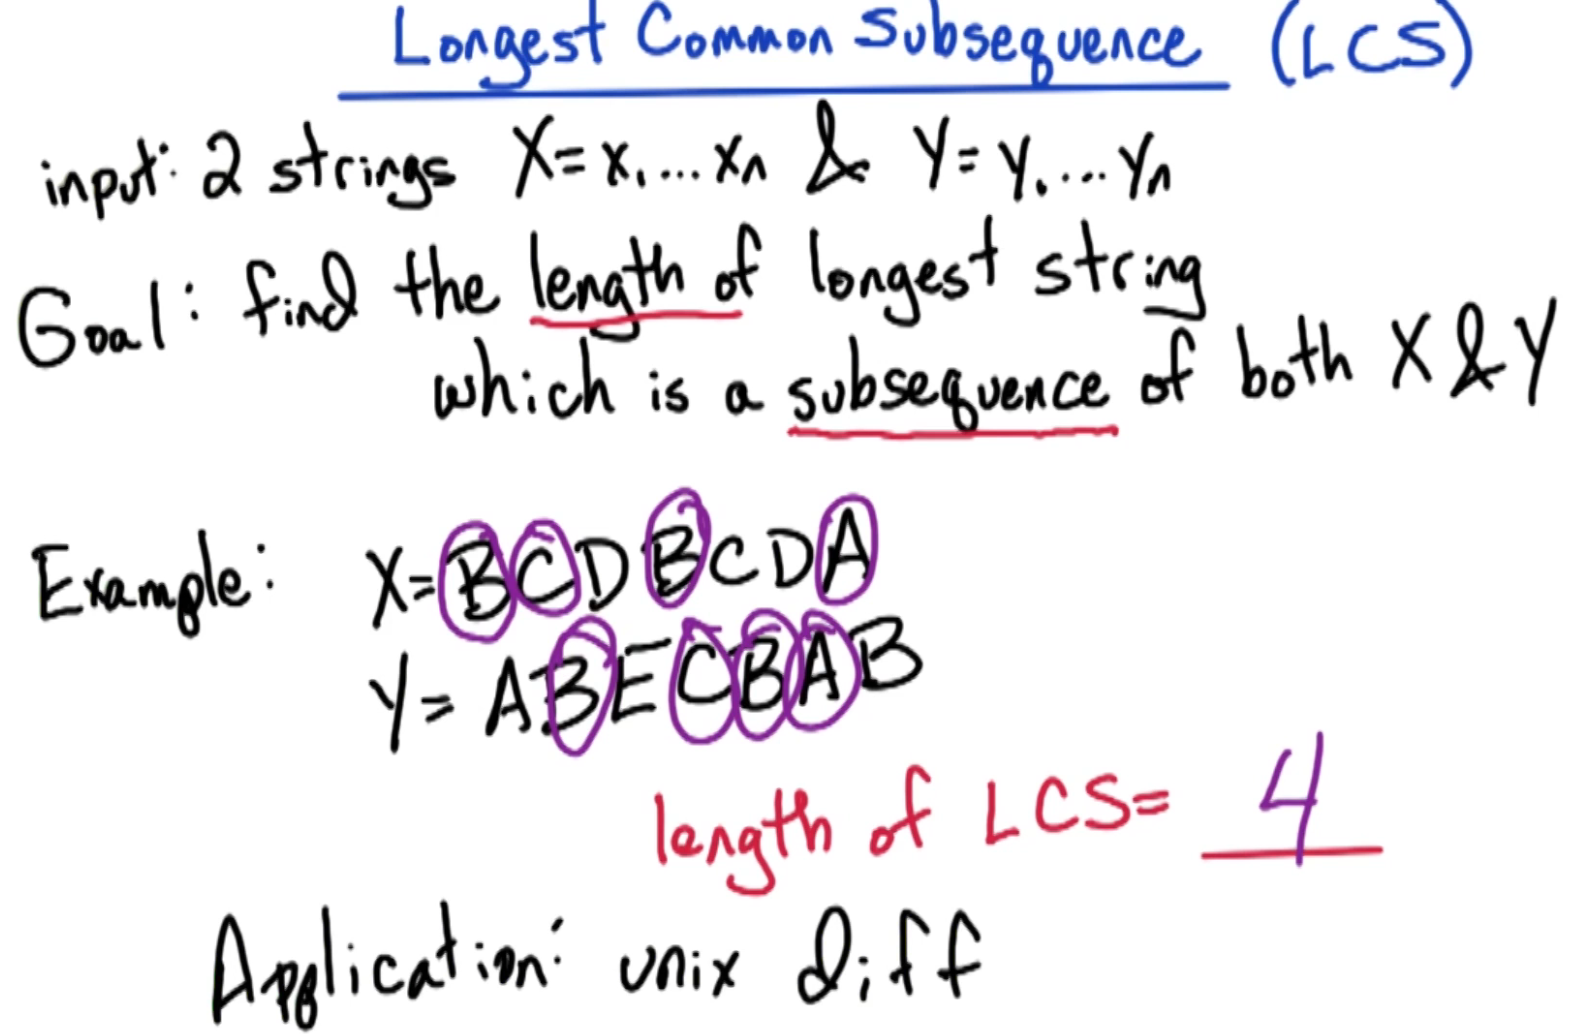 Longest Common Subsequence (LCS)
input: 2 strings X = x₁...xₙ & Y = y₁...yₙ
Goal: find the length of longest string
which is a subsequence of both X & Y
Example: X = BCDBCDA
Y = ABECBAB
length of LCS = 4
Application: unix diff